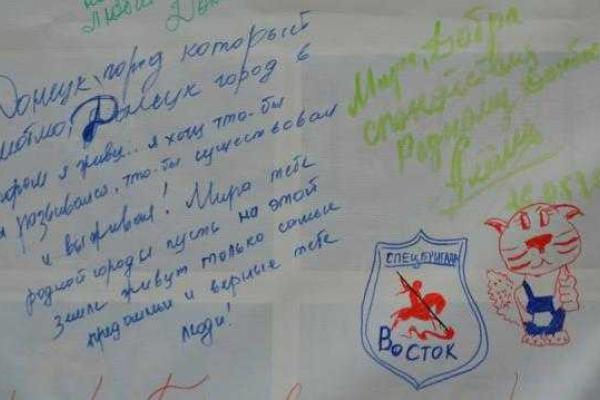 Донецк, город который
люблю, Донецк город в
котором я живу... я хочу что-бы
развивался, что-бы существовал
и выживал! Мира тебе
родной город и пусть на этой
земле живут только самые
преданные и верные тебе
люди!
Мира, Добра
спокойствия
Родному
СПЕЦБРИГАДА
ВОСТОК